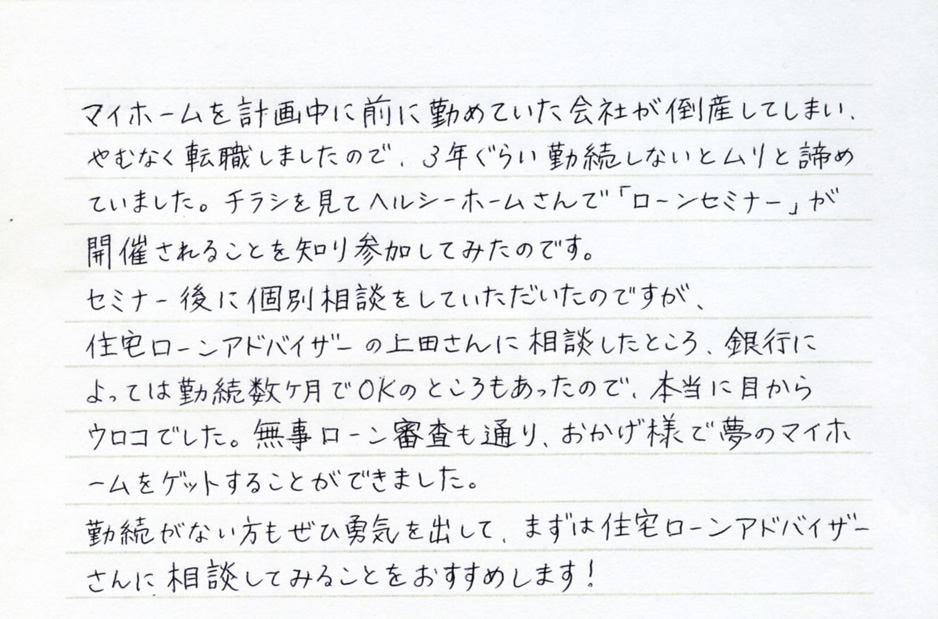 マイホームを計画中に前に勤めていた会社が倒産してしまい、
やむなく転職しましたので、3年ぐらい勤続しないとムリと諦め
ていました。チラシを見てヘルシーホームさんで「ローンセミナー」が
開催されることを知り参加してみたのです。
セミナー後に個別相談をしていただいたのですが、
住宅ローンアドバイザーの上田さんに相談したところ、銀行に
よっては勤続数ヶ月でOKのところもあったので、本当に目から
ウロコでした。無事ローン審査も通り、おかげ様で夢のマイホ
ームをゲットすることができました。
勤続がない方もぜひ勇気を出して、まずは住宅ローンアドバイザー
さんに相談してみることをおすすめします!